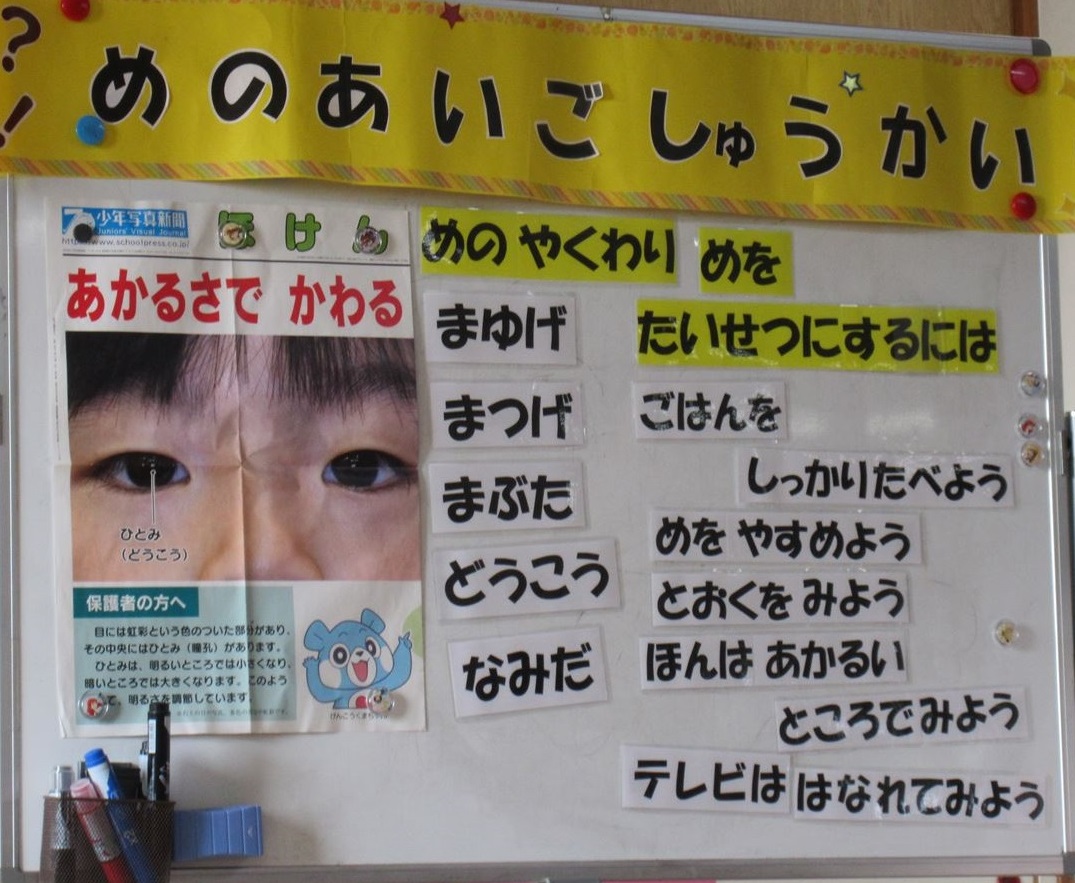 ?
!
めのあいごしゅうかい
少年写真新聞
Juniors' Visual Journal
http://www.schoolpress.co.jp/
ほけん
あかるさで かわる
ひとみ
(どうこう)
保護者の方へ
目には虹彩という色のついた部分があり、
その中央にはひとみ（瞳孔）があります。
ひとみは、明るいところでは小さくなり、
暗いところでは大きくなります。このよう
て、明るさを調節しています。
めの やくわり
まゆげ
まつげ
まぶた
どうこう
なみだ
めを
たいせつにするには
ごはんを
しっかりたべよう
めを やすめよう
とおくを みよう
ほんは あかるい
ところでみよう
テレビは はなれてみよう